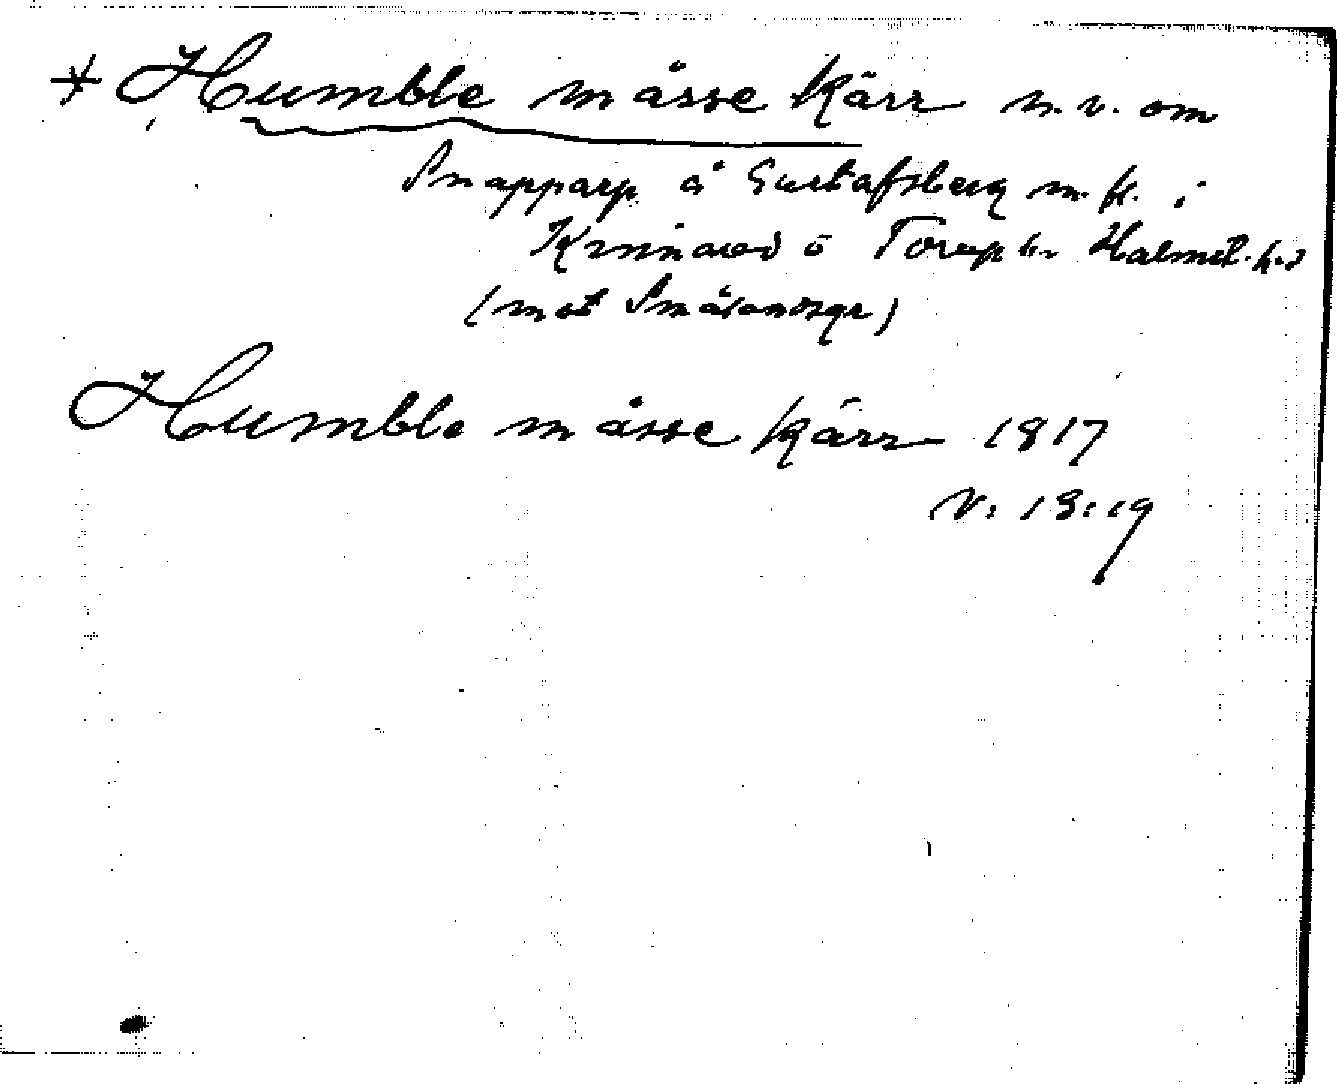 * Humble måsse kärr n.v. om
Snapparp å Gustafsberg m.fl. i
Kinnared o Torup sn Halmst. h.d
(mot Smålandsgr)
Humble måsse kärr 1817
V: 13:19